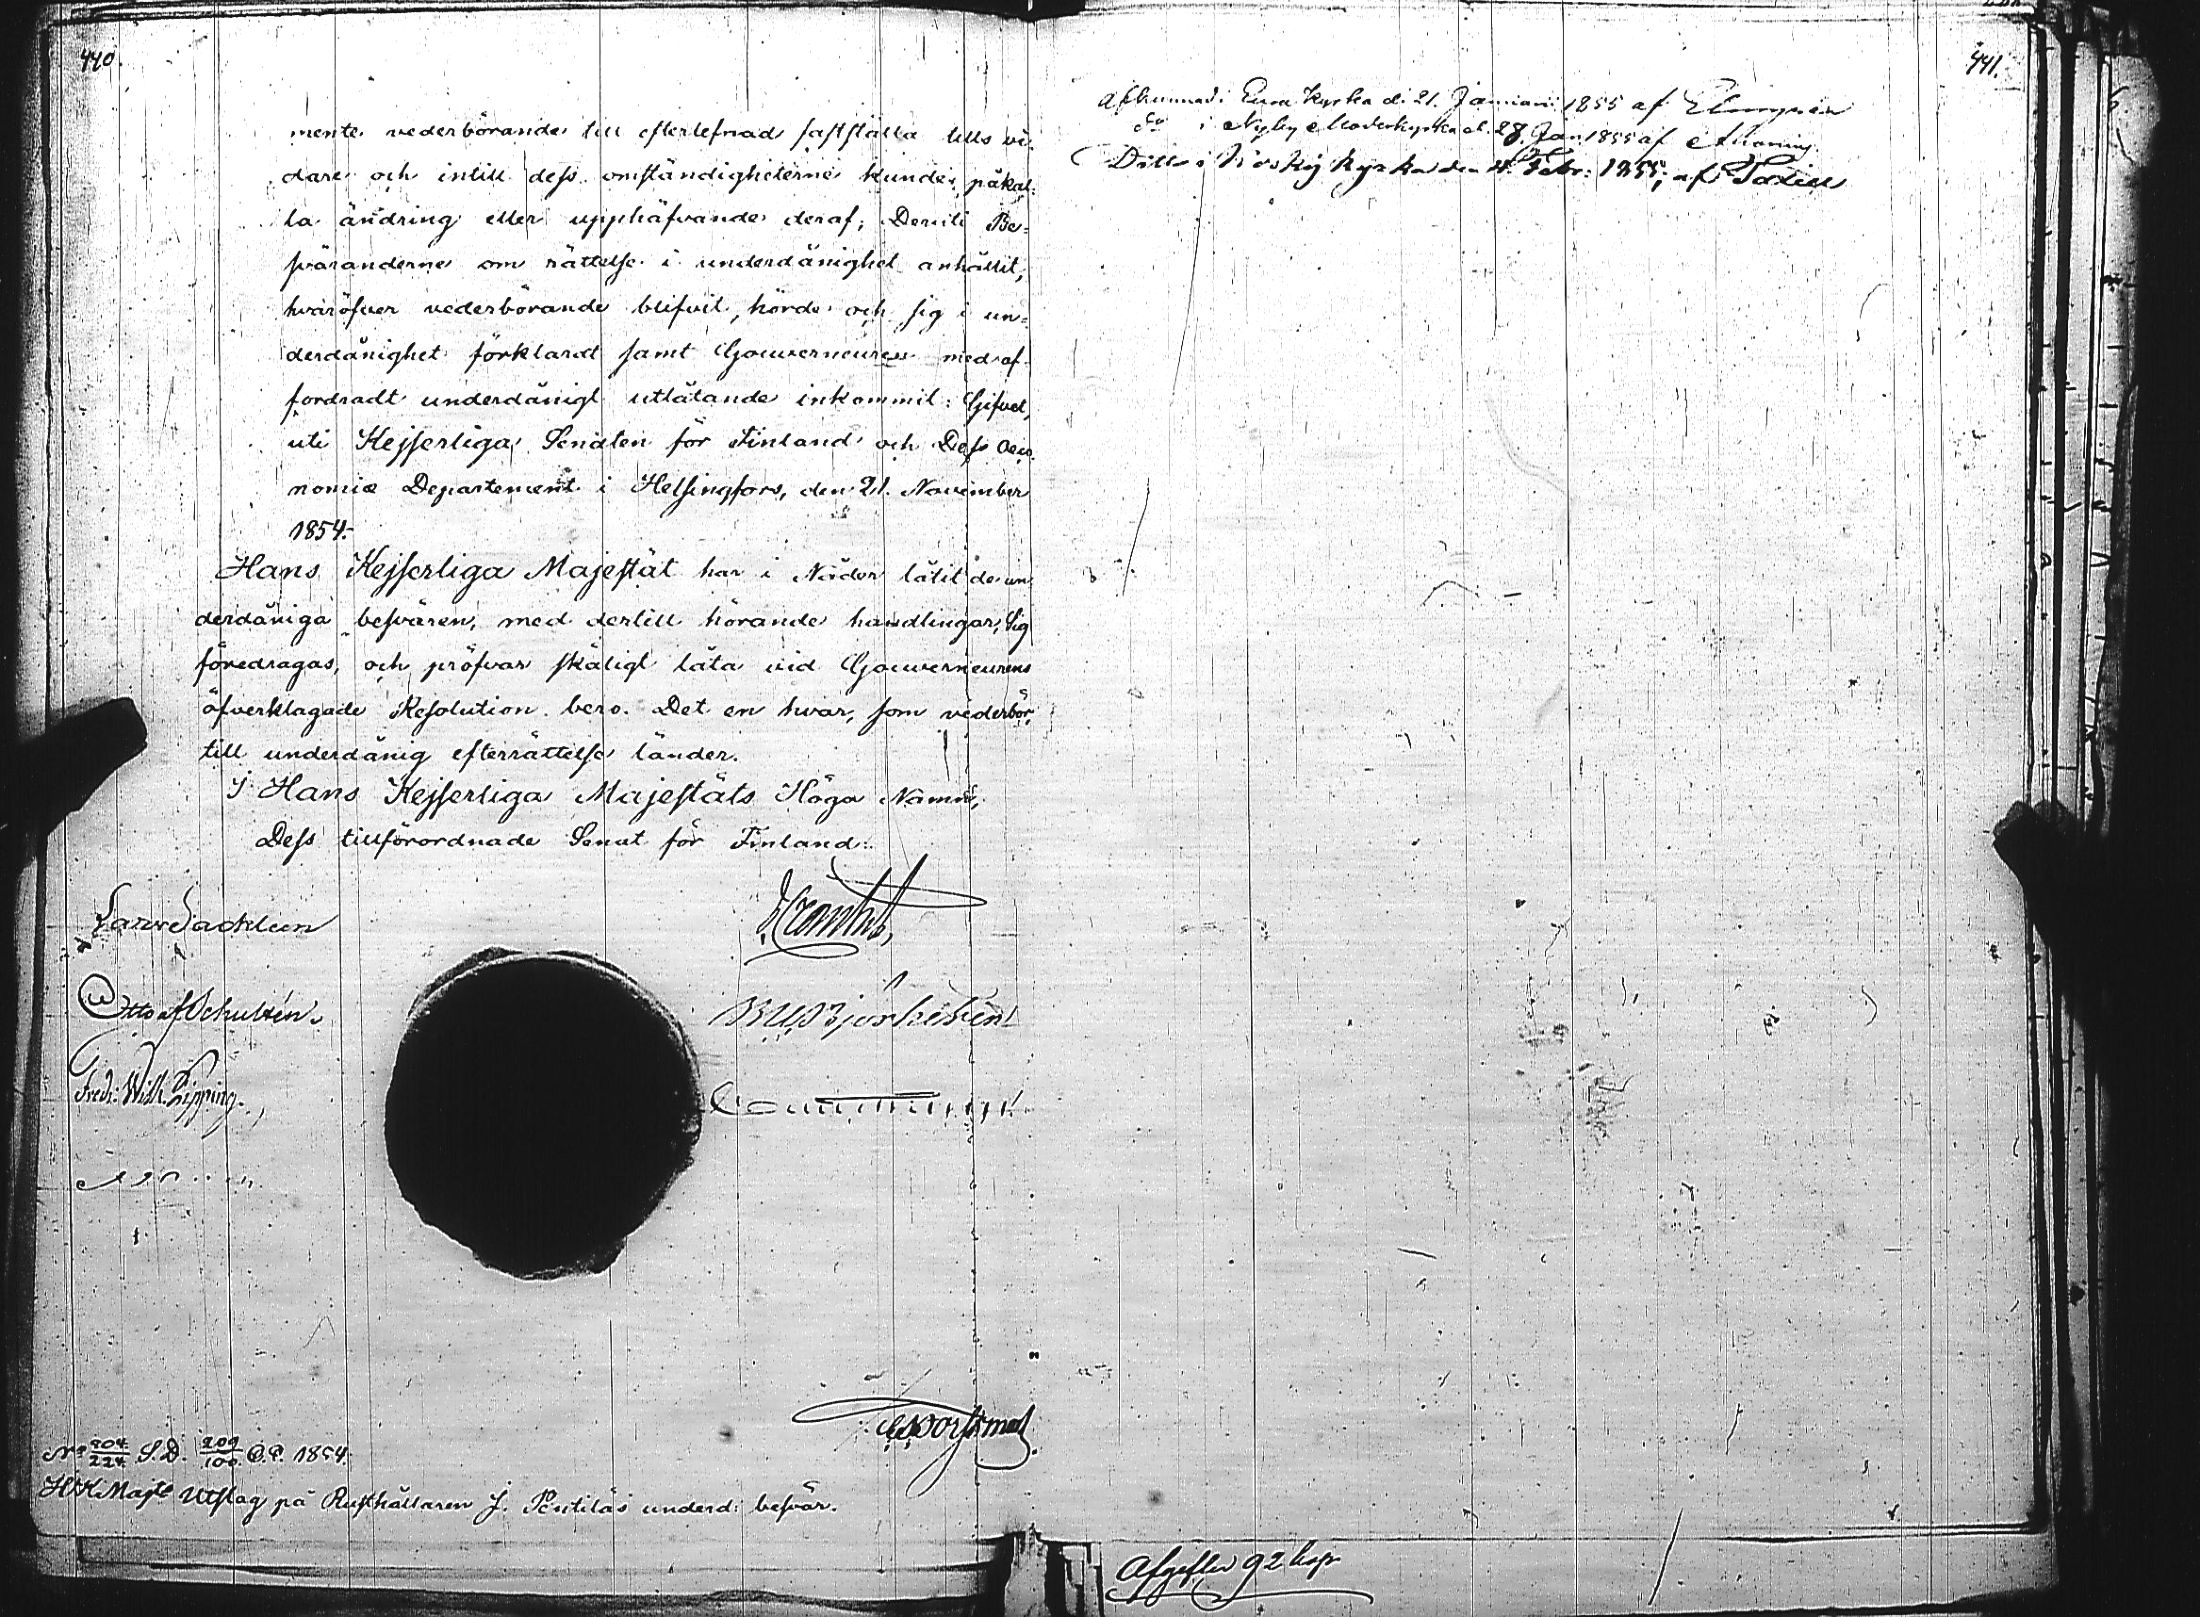 440.
mente vederbörande till efterlefnad fastställa tills vi-
dare och intill dess omständigheterne kunde påkal-
la ändring eller upphäfvande deraf; Deruti Be-
sväranderne om rättelse i underdånighet anhållit,
hvaröfver vederbörande blifvit hörde och sig i un-
derdånighet förklarat samt Gouverneuren med af-
fordradt underdånigt utlåtande inkommit: Gifvet,
uti Kejserliga Senaten för Finland och Dess Oeco-
nomiæ Departement i Helsingfors, den 21. November
1854.
Hans Kejserliga Majestät har i Nåder låtit de un-
derdåniga besvären, med dertill hörande handlingar, Sig
föredragas, och pröfvar skäligt låta vid Gouverneurens
öfverklagade Resolution bero. Det en hvar, som vederbör,
till underdånig efterrättelse länder.
I Hans Kejserliga Majestäts Höga Namn,
Dess tillförordnade Senat för Finland:
Lars Sackleen
Otto af Schultén.
B U Björkstén
Fredr: Wilh. Pipping.
No 904/224 S.D. 209/100 E.E. 1854.
H K Majts Utslag på Rusthållaren J. Pentiläs underd: besvär.
441.
Afkunnad i Eura Kyrka d. 21. Januari 1855 af
do i Moderkyrka d. 28. Jan. 1855 af
Ditto i kyrka den 4. Febr: 1855, af
Afgifter 92 kop